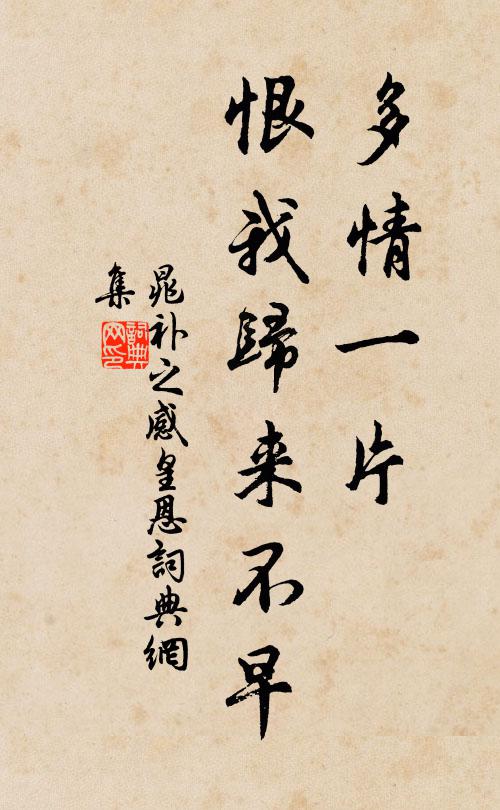 多情一片
恨我歸来不早
晁补之感皇恩詞典網
集
詞典
网印